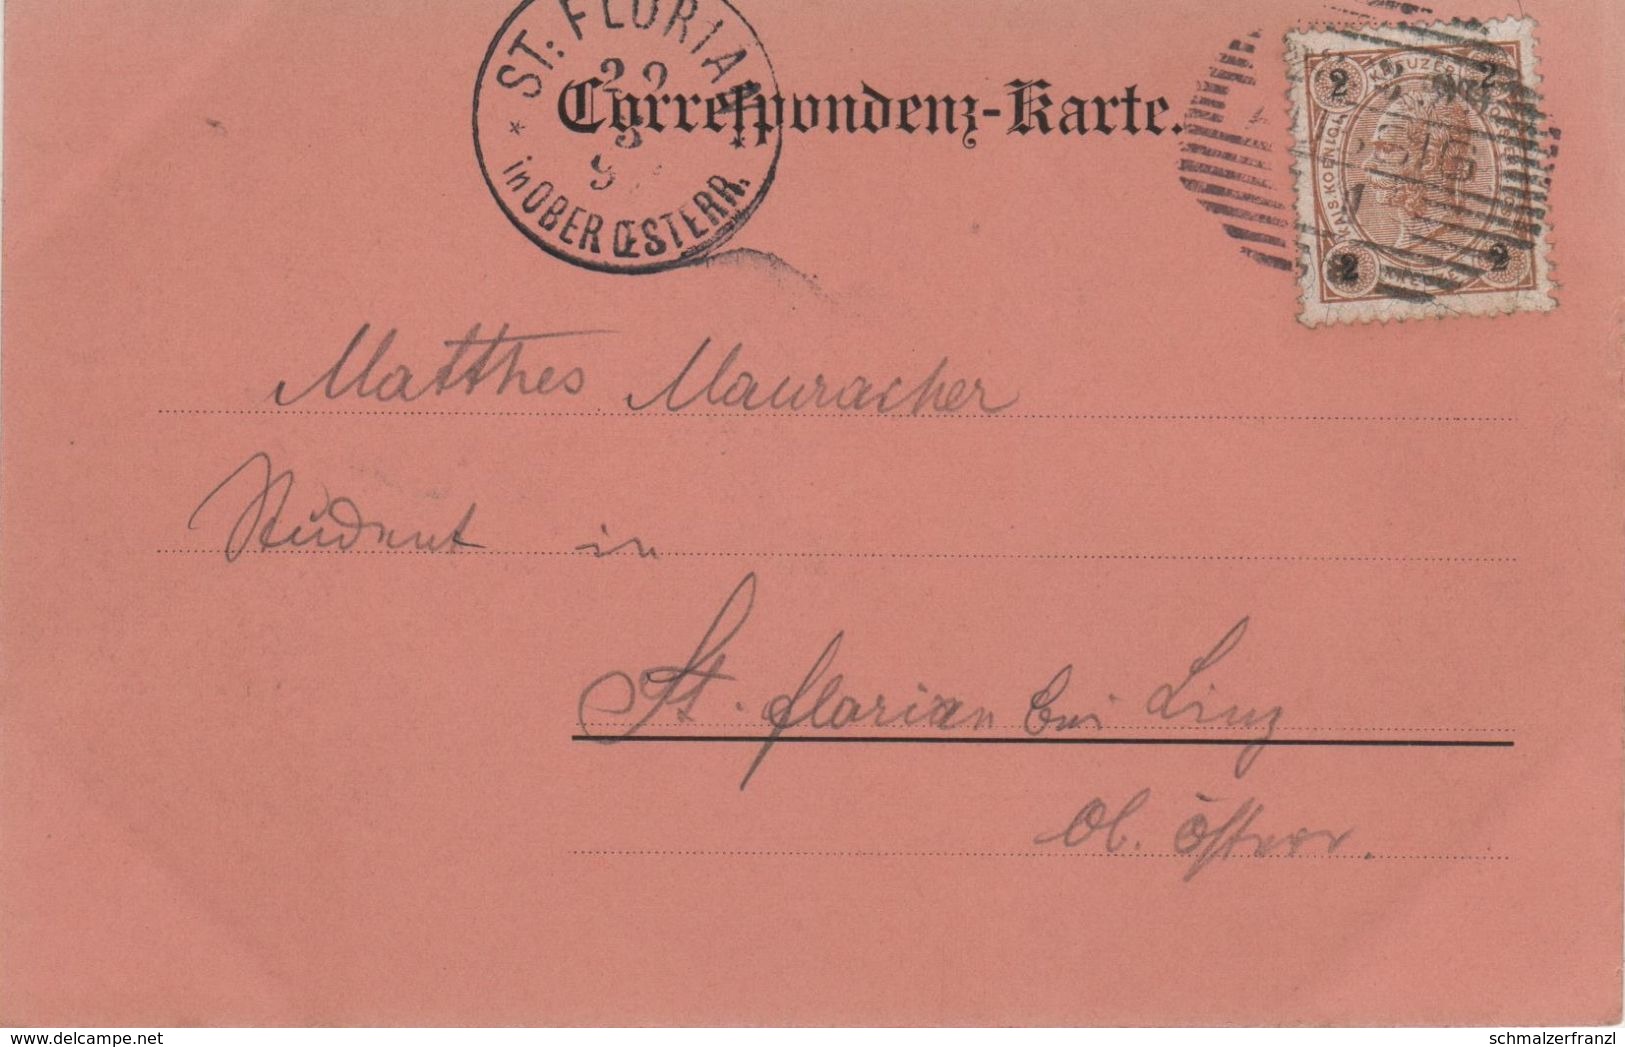 ST. FLORIAN
in OBER ŒSTERR.
Correspondenz-Karte.
2 2
2 2
Matthes Mauracher
Student in
St. Florian bei Linz
Ob. Österr.
www.delcampe.net
schmalzerfranzl